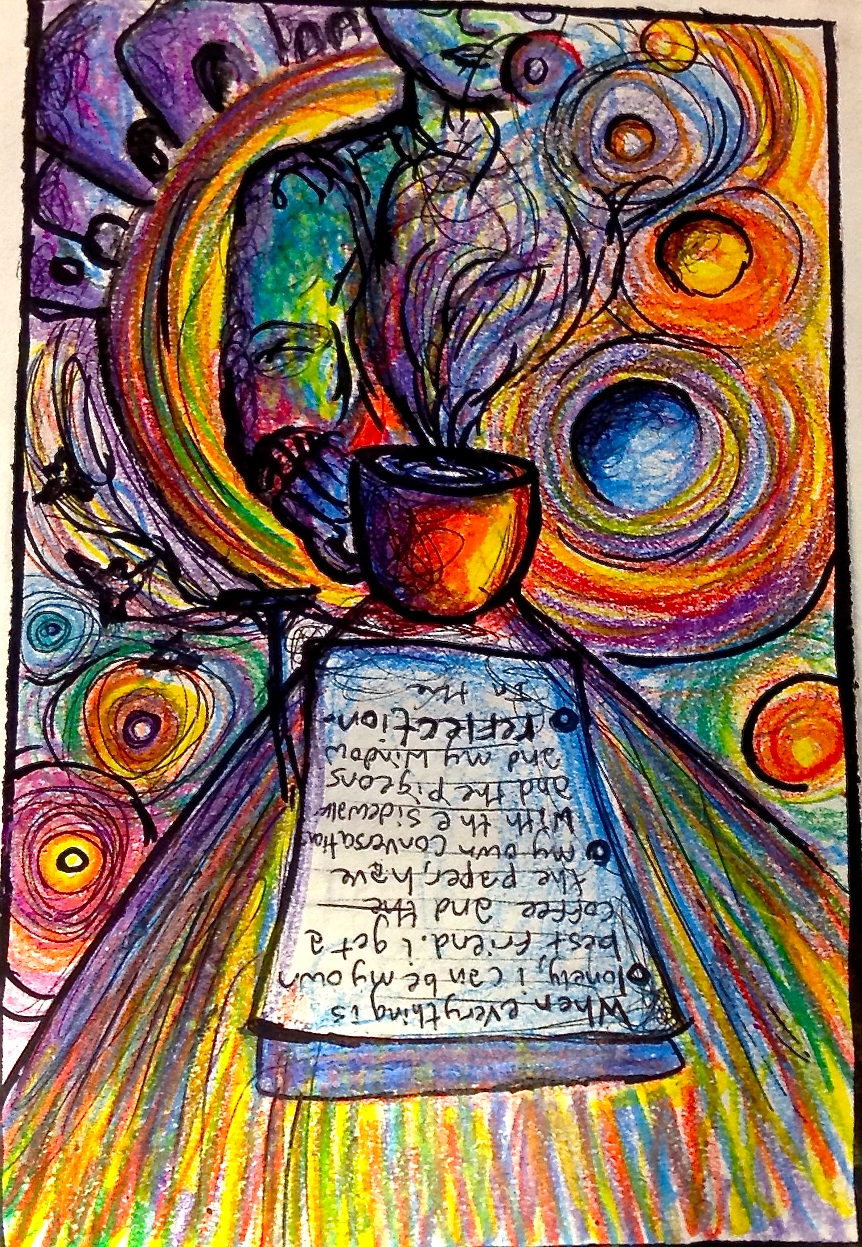 When everything is
lonely, i can be my own
best friend. i get a
coffee and the
the paper, have
my own conversation
with the sidewalk
and the pigeons
and my window
reflection.
In the